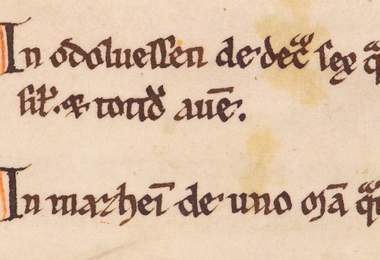 In odoluessen de decẽ sex
sił. & totid̃ auē.
In mazheī de uno mā